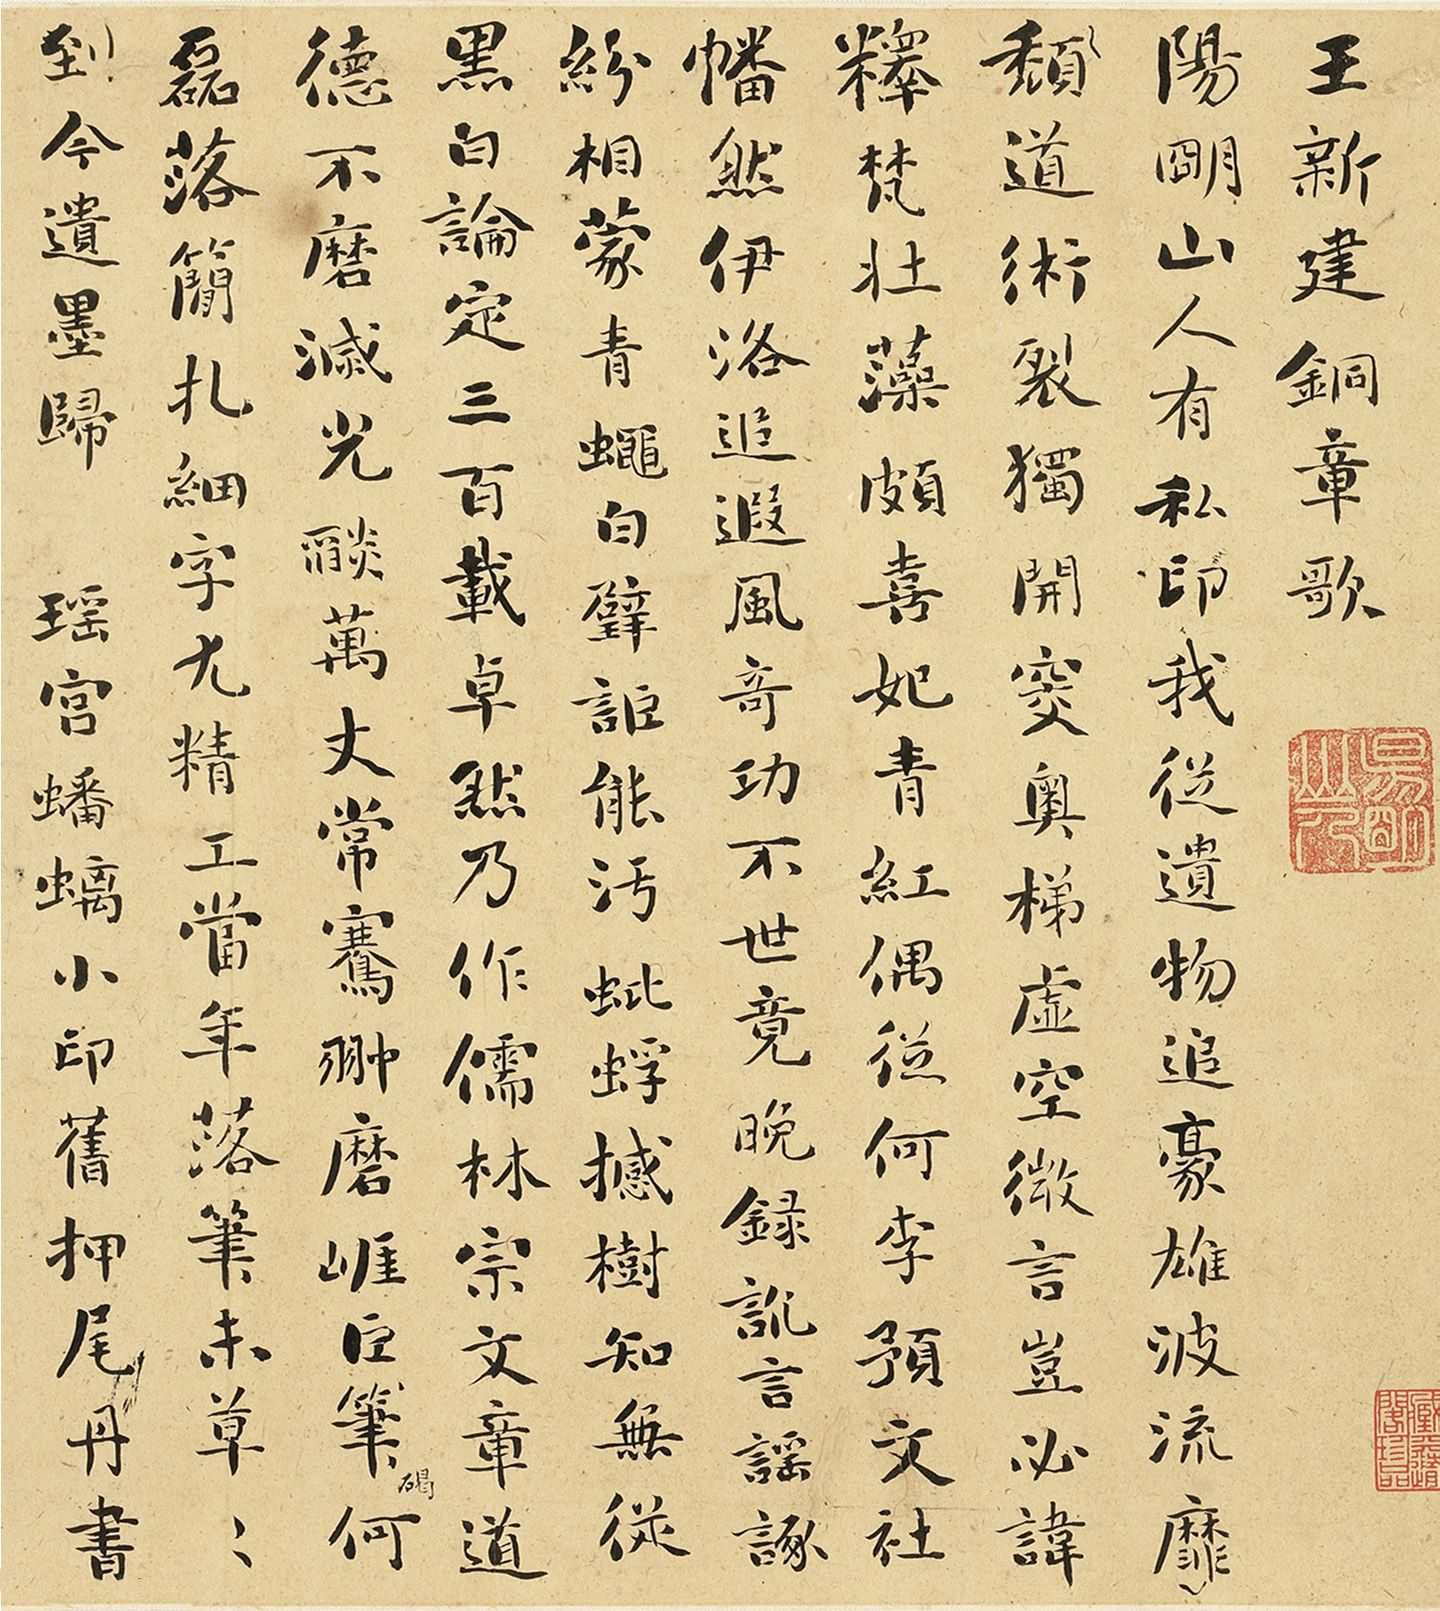 王新建銅章歌
陽朙山人有私印我從遺物追豪雄波流靡
頹道術裂獨開突奧梯虛空微言豈必諱
釋梵壯藻頗喜妃青紅偶從何李預文社
幡然伊洛追遐風奇功不世竟晚錄訛言謠諑
紛相蒙青蠅白璧詎能污蚍蜉撼樹知無從
黑白論定三百載卓然乃作儒林宗文章道
德不磨滅光燄萬丈常騫翀磨崕巨筆何
碣
磊落簡扎細字尤精工當年落筆未草〻
到今遺墨歸 瑶宮蟠螭小印舊押尾丹書
陽明山人